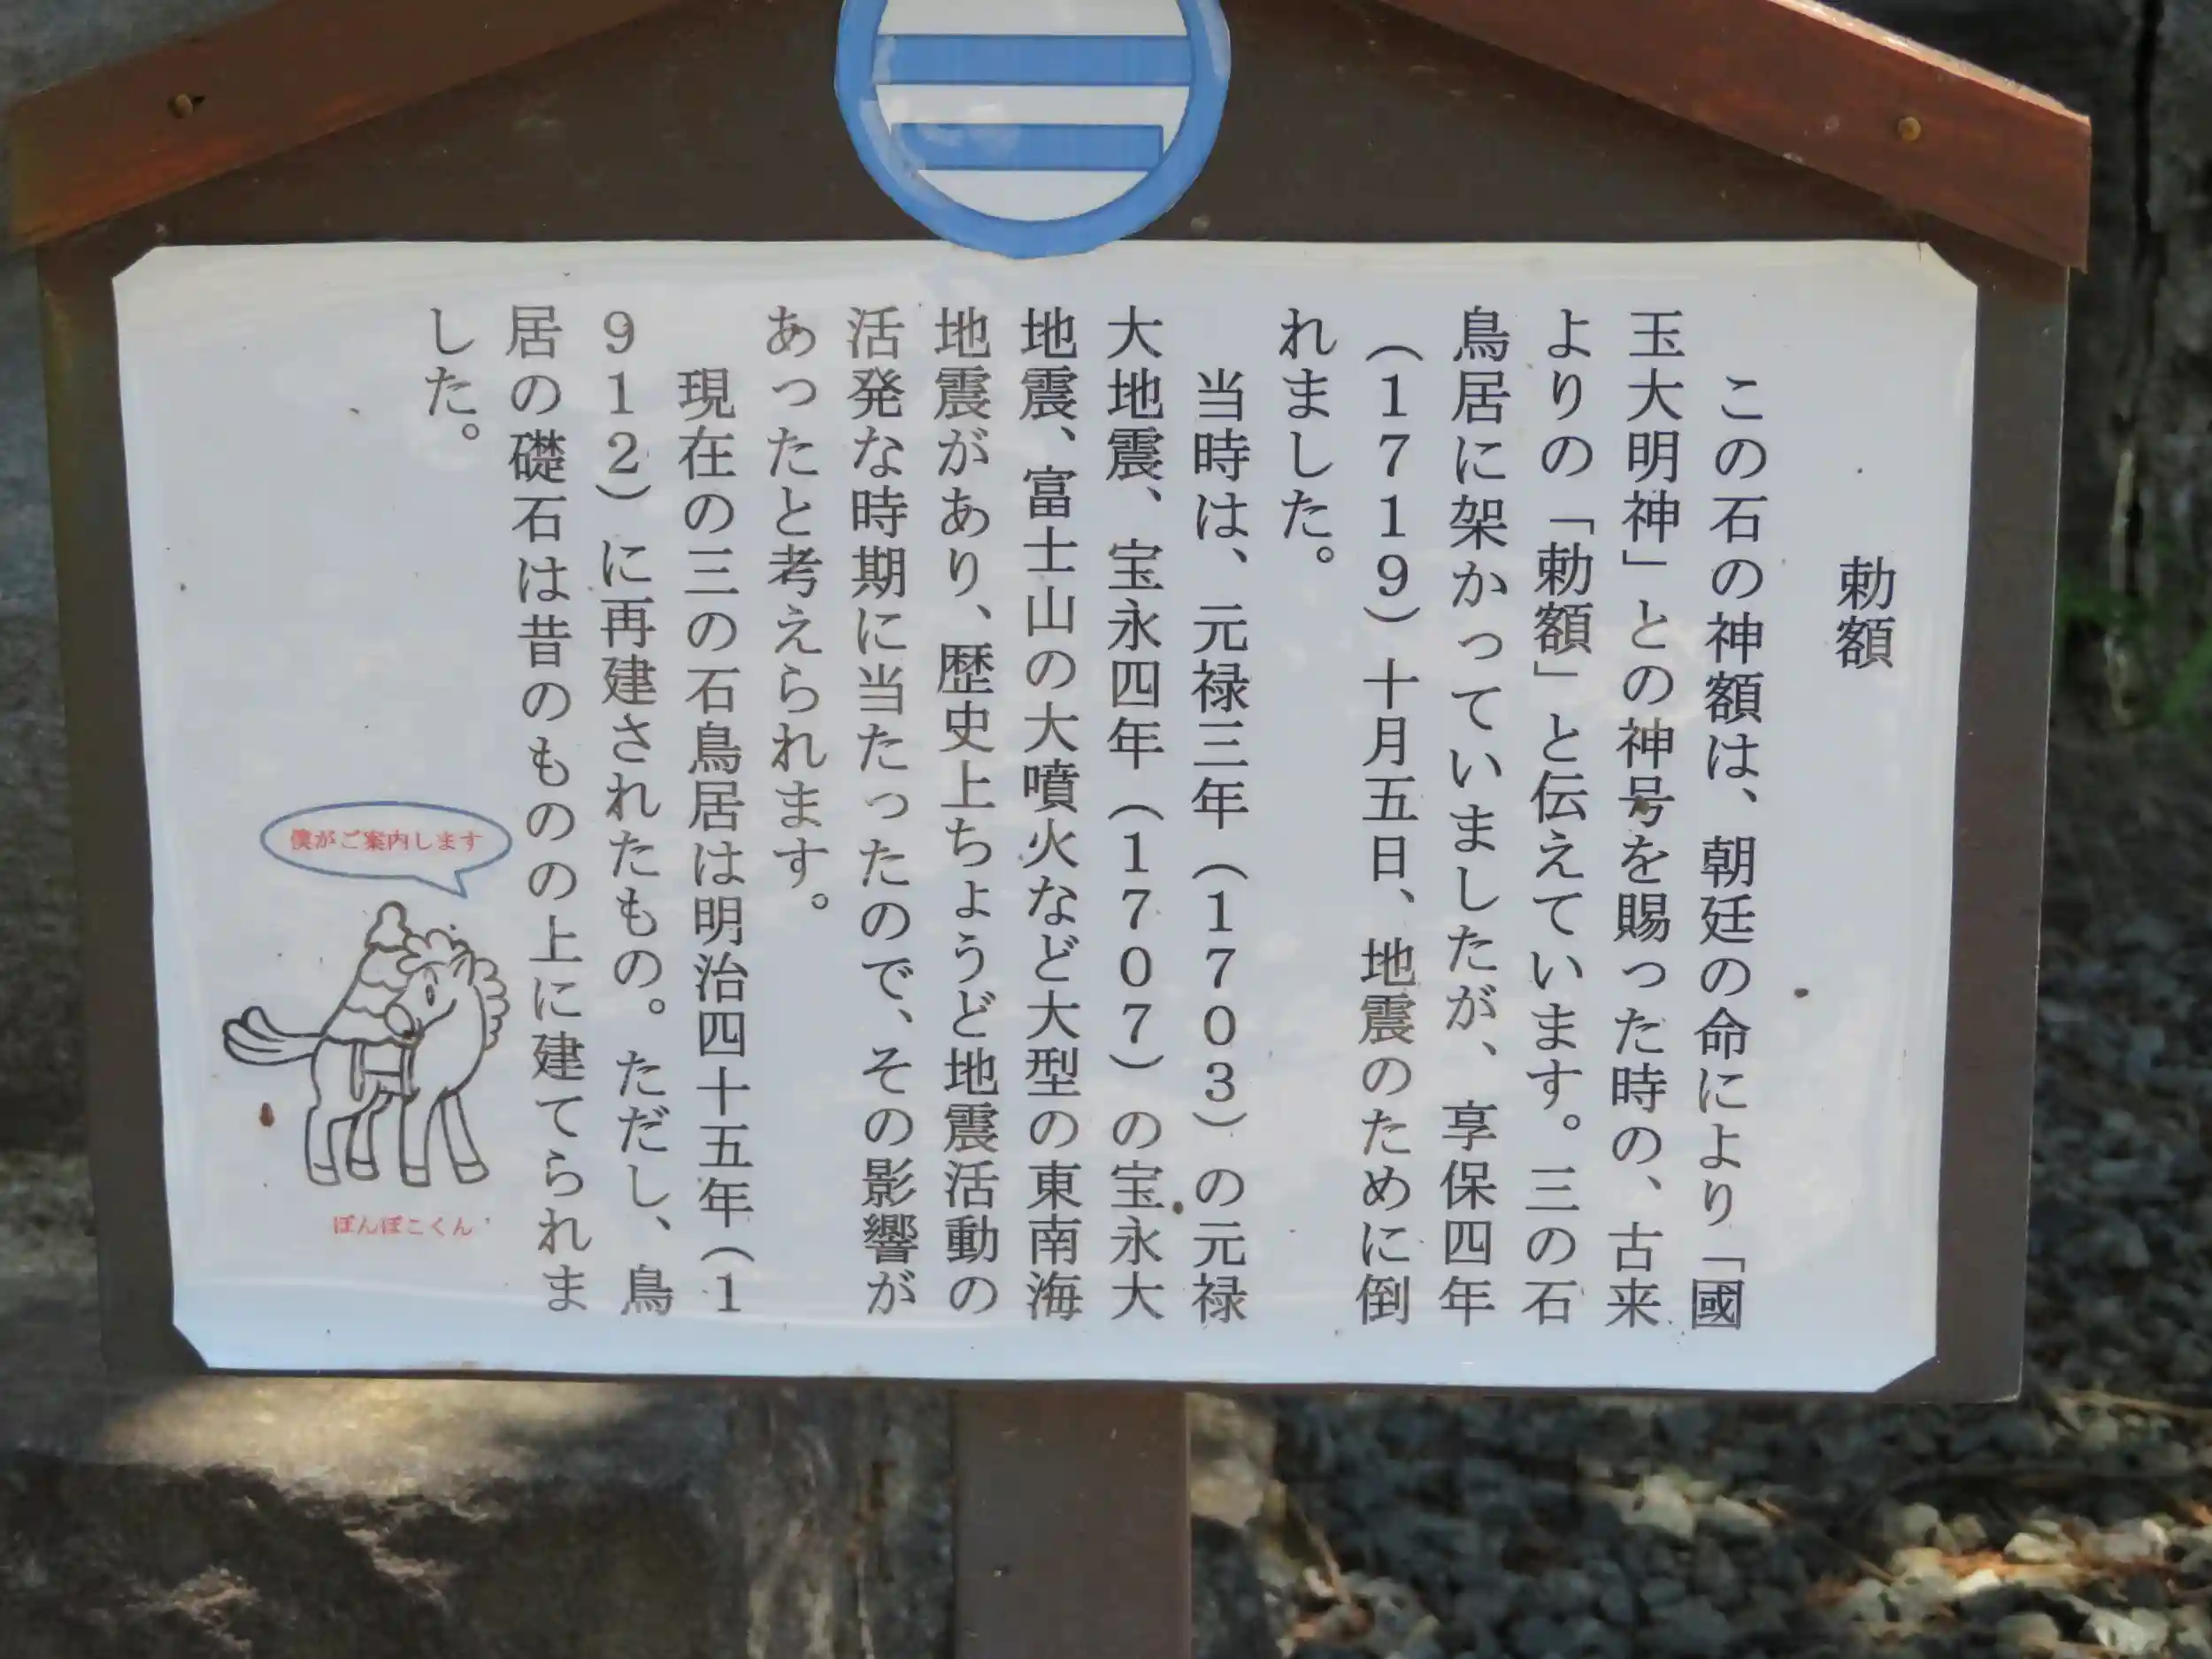 勅額
この石の神額は、朝廷の命により「國
玉大明神」との神号を賜った時の、古来
よりの「勅額」と伝えています。三の石
鳥居に架かっていましたが、享保四年
（1719）十月五日、地震のために倒
れました。
当時は、元禄三年（1703）の元禄
大地震、宝永四年（1707）の宝永大
地震、富士山の大噴火など大型の東南海
地震があり、歴史上ちょうど地震活動の
活発な時期に当たったので、その影響が
あったと考えられます。
現在の三の石鳥居は明治四十五年（1
912）に再建されたもの。ただし、鳥
居の礎石は昔のものの上に建てられま
した。
僕がご案内します
ぽんぽこくん